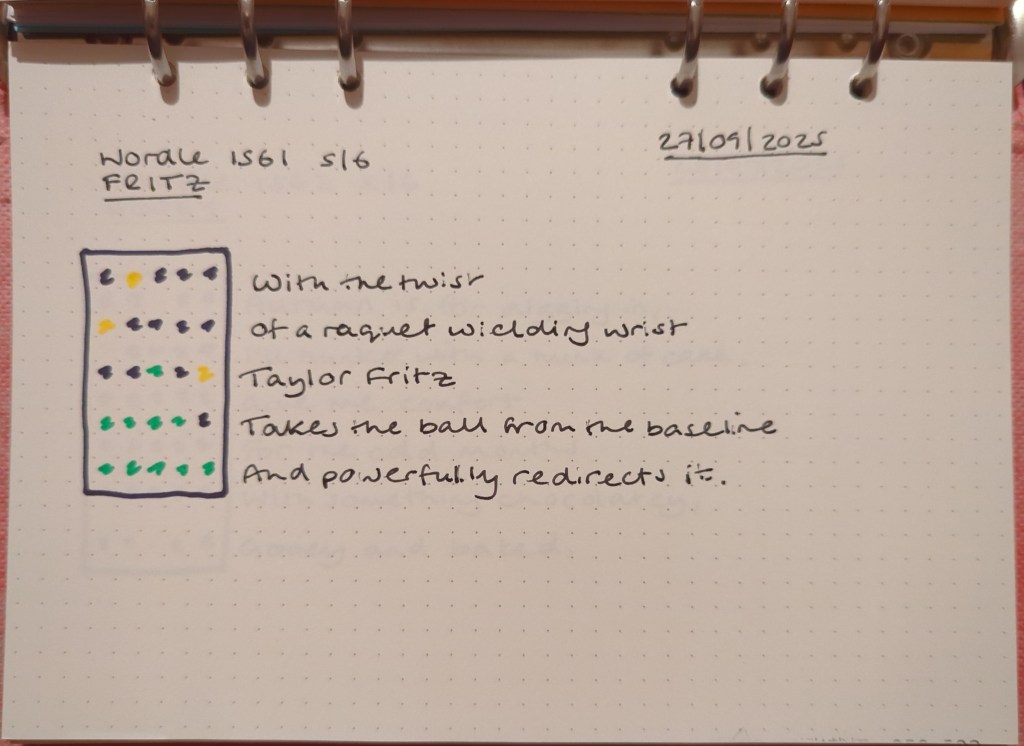 Wordle 1561 5/6
27/09/2025
FRITZ
With the twist
of a raquet wielding wrist
Taylor Fritz
Takes the ball from the baseline
And powerfully redirects it.